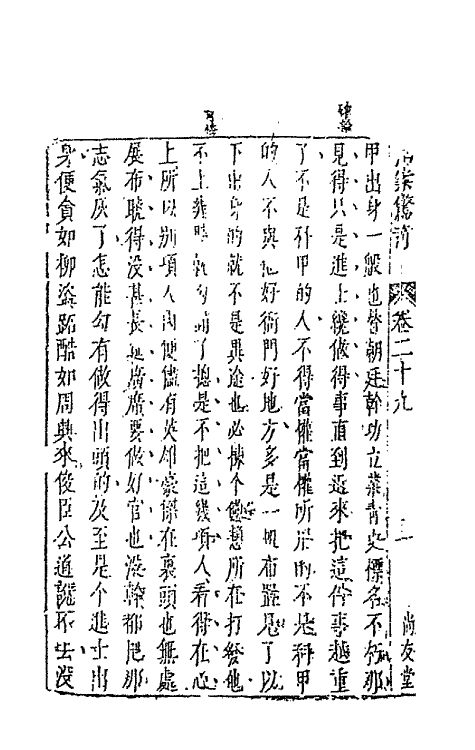 拍案驚奇 卷二十九 二 尚友堂
確論
甲出身一般也替朝廷幹功立業青史標名不朽那
見得只是進士纔做得事直到近來把這件事越重
了不是科甲的人不得當權當權所用的不是科甲
的人不與他好衙門好地方多是一帆布置見了以
下出身的就不是異途也必揀个憊懶所在打發他
不上幾時就勾銷了總是不把這幾項人看得在心
上所以別項人內便儘有英雄豪傑在裏頭也無處
展布曉得没甚長筵廣席要做好官也没幹都把那
志氣灰了怎能勾有做得出頭的及至是个進士出
身便貪如柳盜跖酷如周興來俊臣公道說不去没